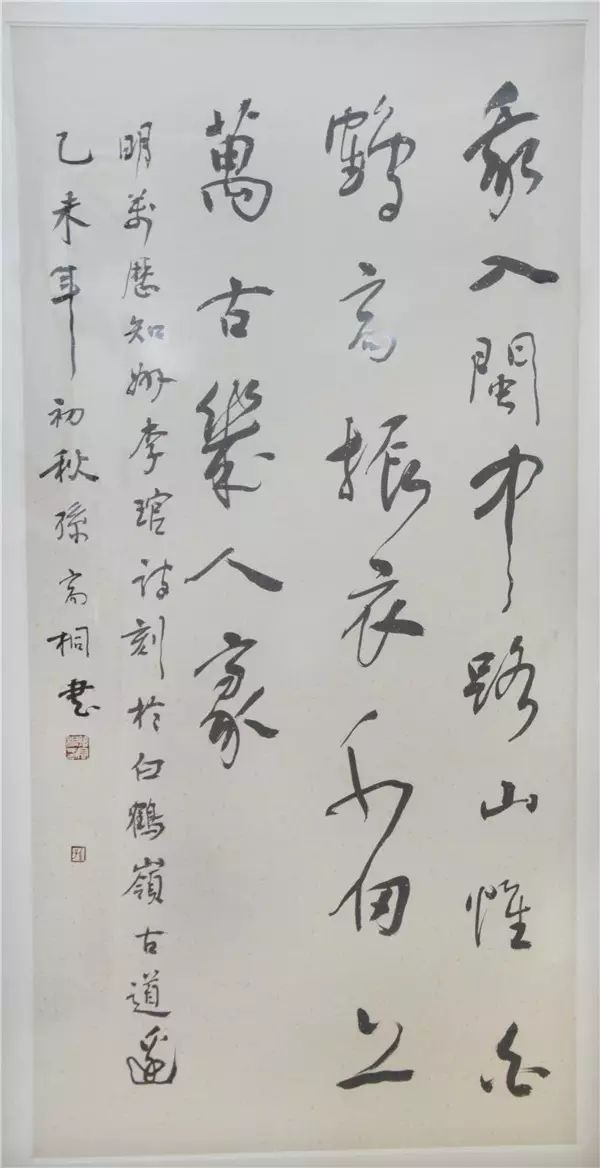 入閩中路山惟白
鶴高振衣千仞上
萬古幾人豪
明萬歷知縣李琯詩刻於白鶴嶺古道邊
乙未年初秋孫高桐書